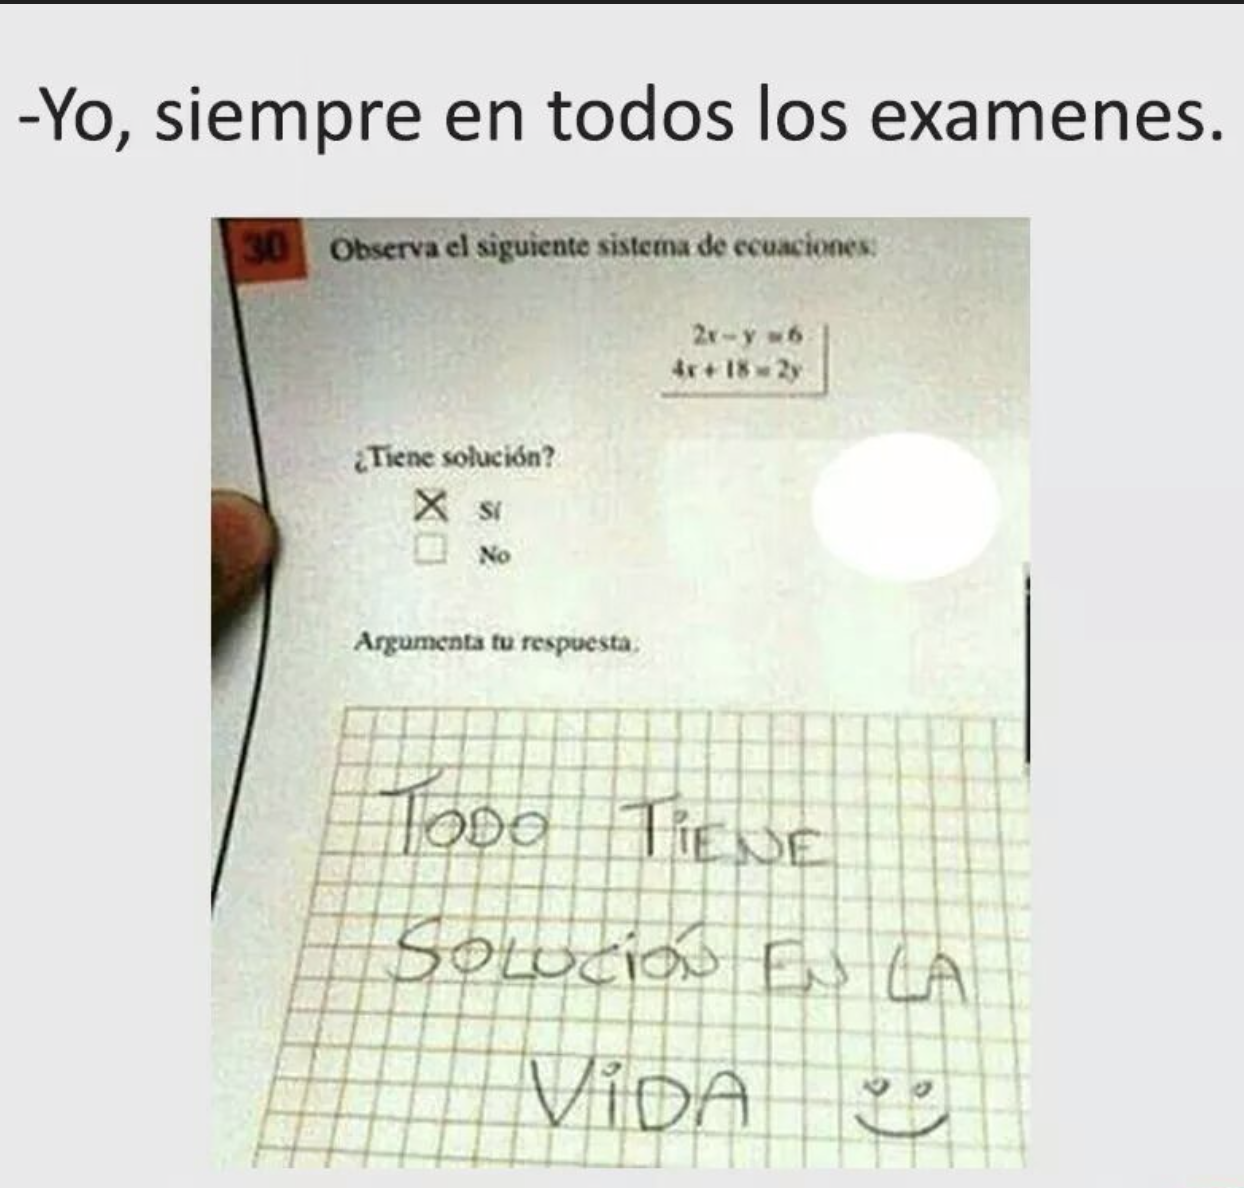 -Yo, siempre en todos los examenes.
30 Observa el siguiente sistema de ecuaciones:
2x - y = 6
4x + 18 = 2y
¿Tiene solución?
Sí
No
Argumenta tu respuesta.
TODO TiENE
SOLUCiÓN EN LA
ViDA